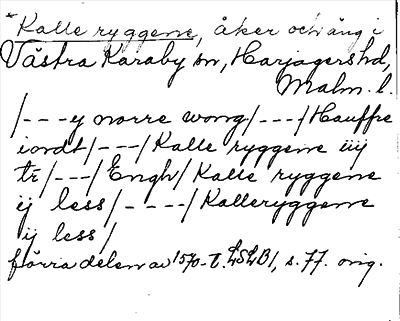 *Kalle ryggene, åker och äng i
Västra Karaby sn, Harjagers hd,
Malm. l.
/---y norre wong/---/Hauffre
iordt/---/Kalle ryggene iiij
tr/---/Engh/Kalle ryggene
ij less/----/Kalleryggene
ij less/
förra delen av 1570-t. LSLB1, s. 77. orig.